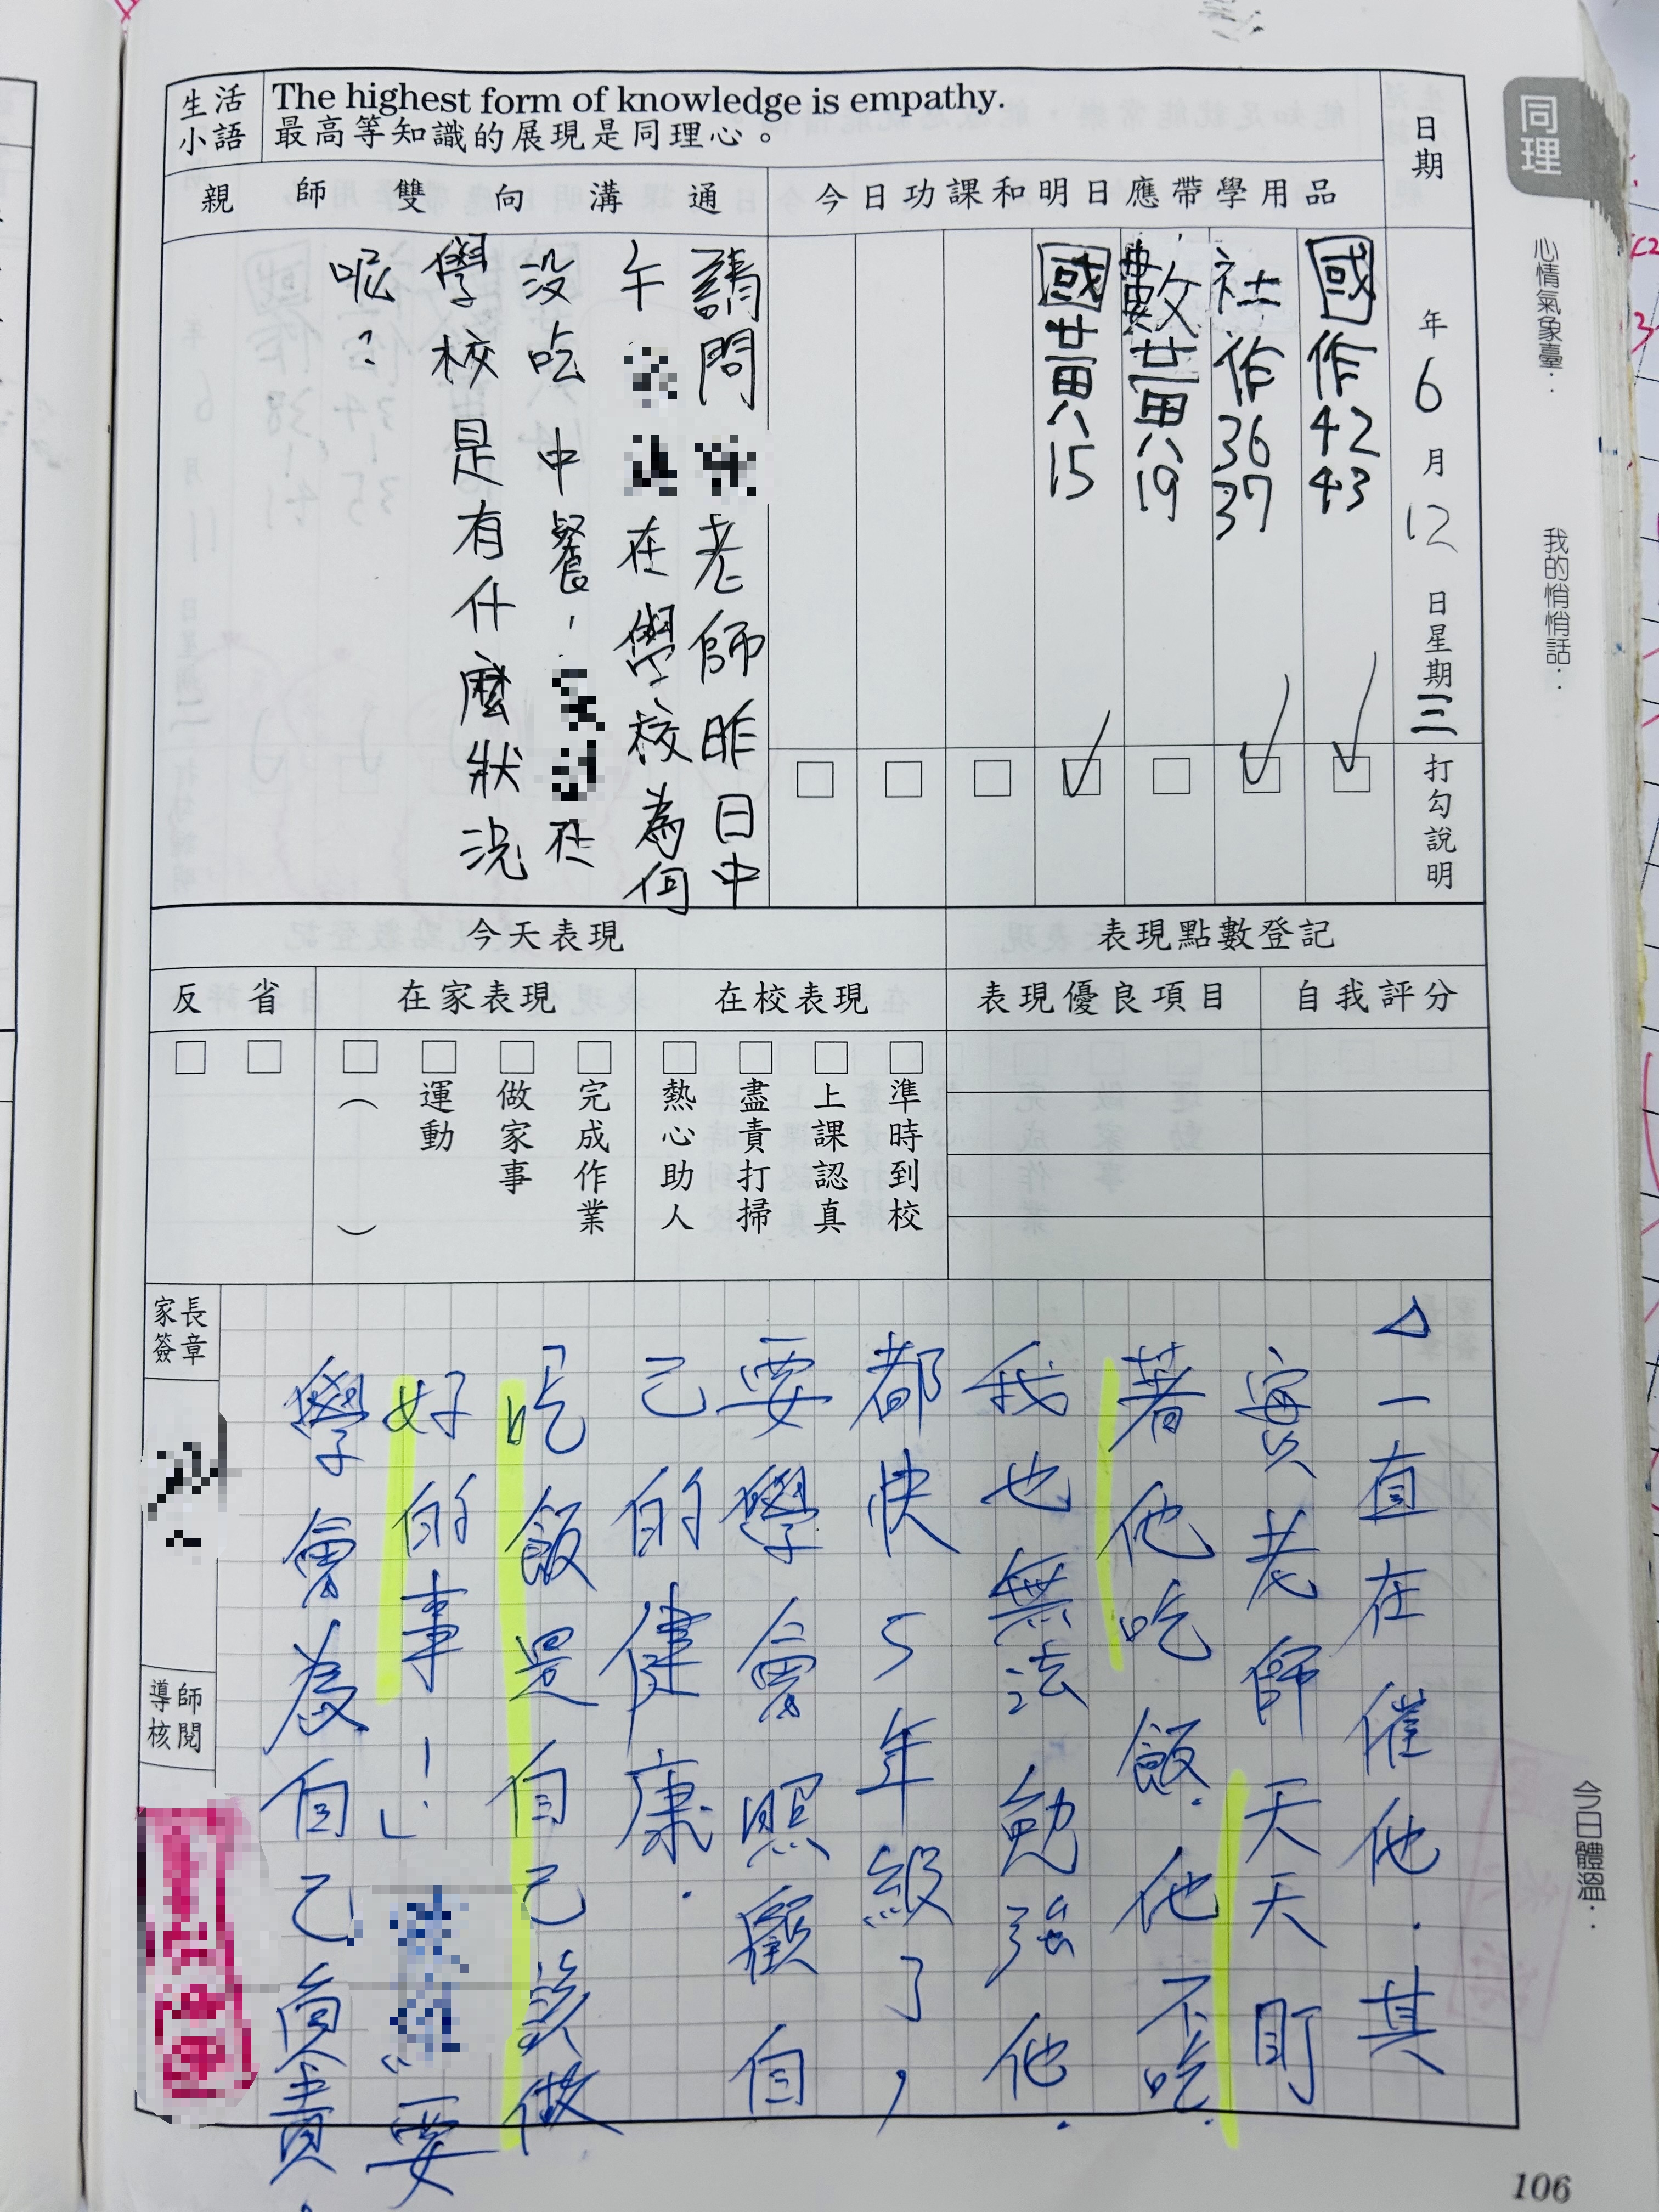 同理
心情氣象臺：
我的悄悄話：
今日體溫：
生活小語
The highest form of knowledge is empathy.
最高等知識的展現是同理心。
日期
年6月12日星期三
打勾說明
今日功課和明日應帶學用品
國作42 43
社作36 37
數黃八19
國黃八15
親師雙向溝通
請問
老師昨日中
午
在學校為何
沒吃中餐,
在
學校是有什麼狀況
呢?
表現點數登記
自我評分
表現優良項目
今天表現
在校表現
準時到校
上課認真
盡責打掃
熱心助人
在家表現
完成作業
做家事
運動
（ ）
反省
家長簽章
導師核閱
△一直在催他.其
實老師天天盯
著他吃飯.他不吃.
我也無法勉強他.
都快5年級了,
要學會照顧自
己的健康.
吃飯是自己該做
好的事!」
"要
學會為自己負責.
106